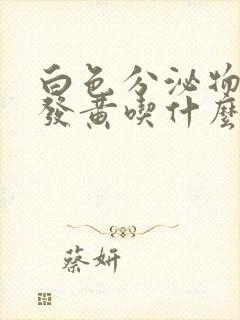 白色分泌物
發黃喫什麼
蔡妍